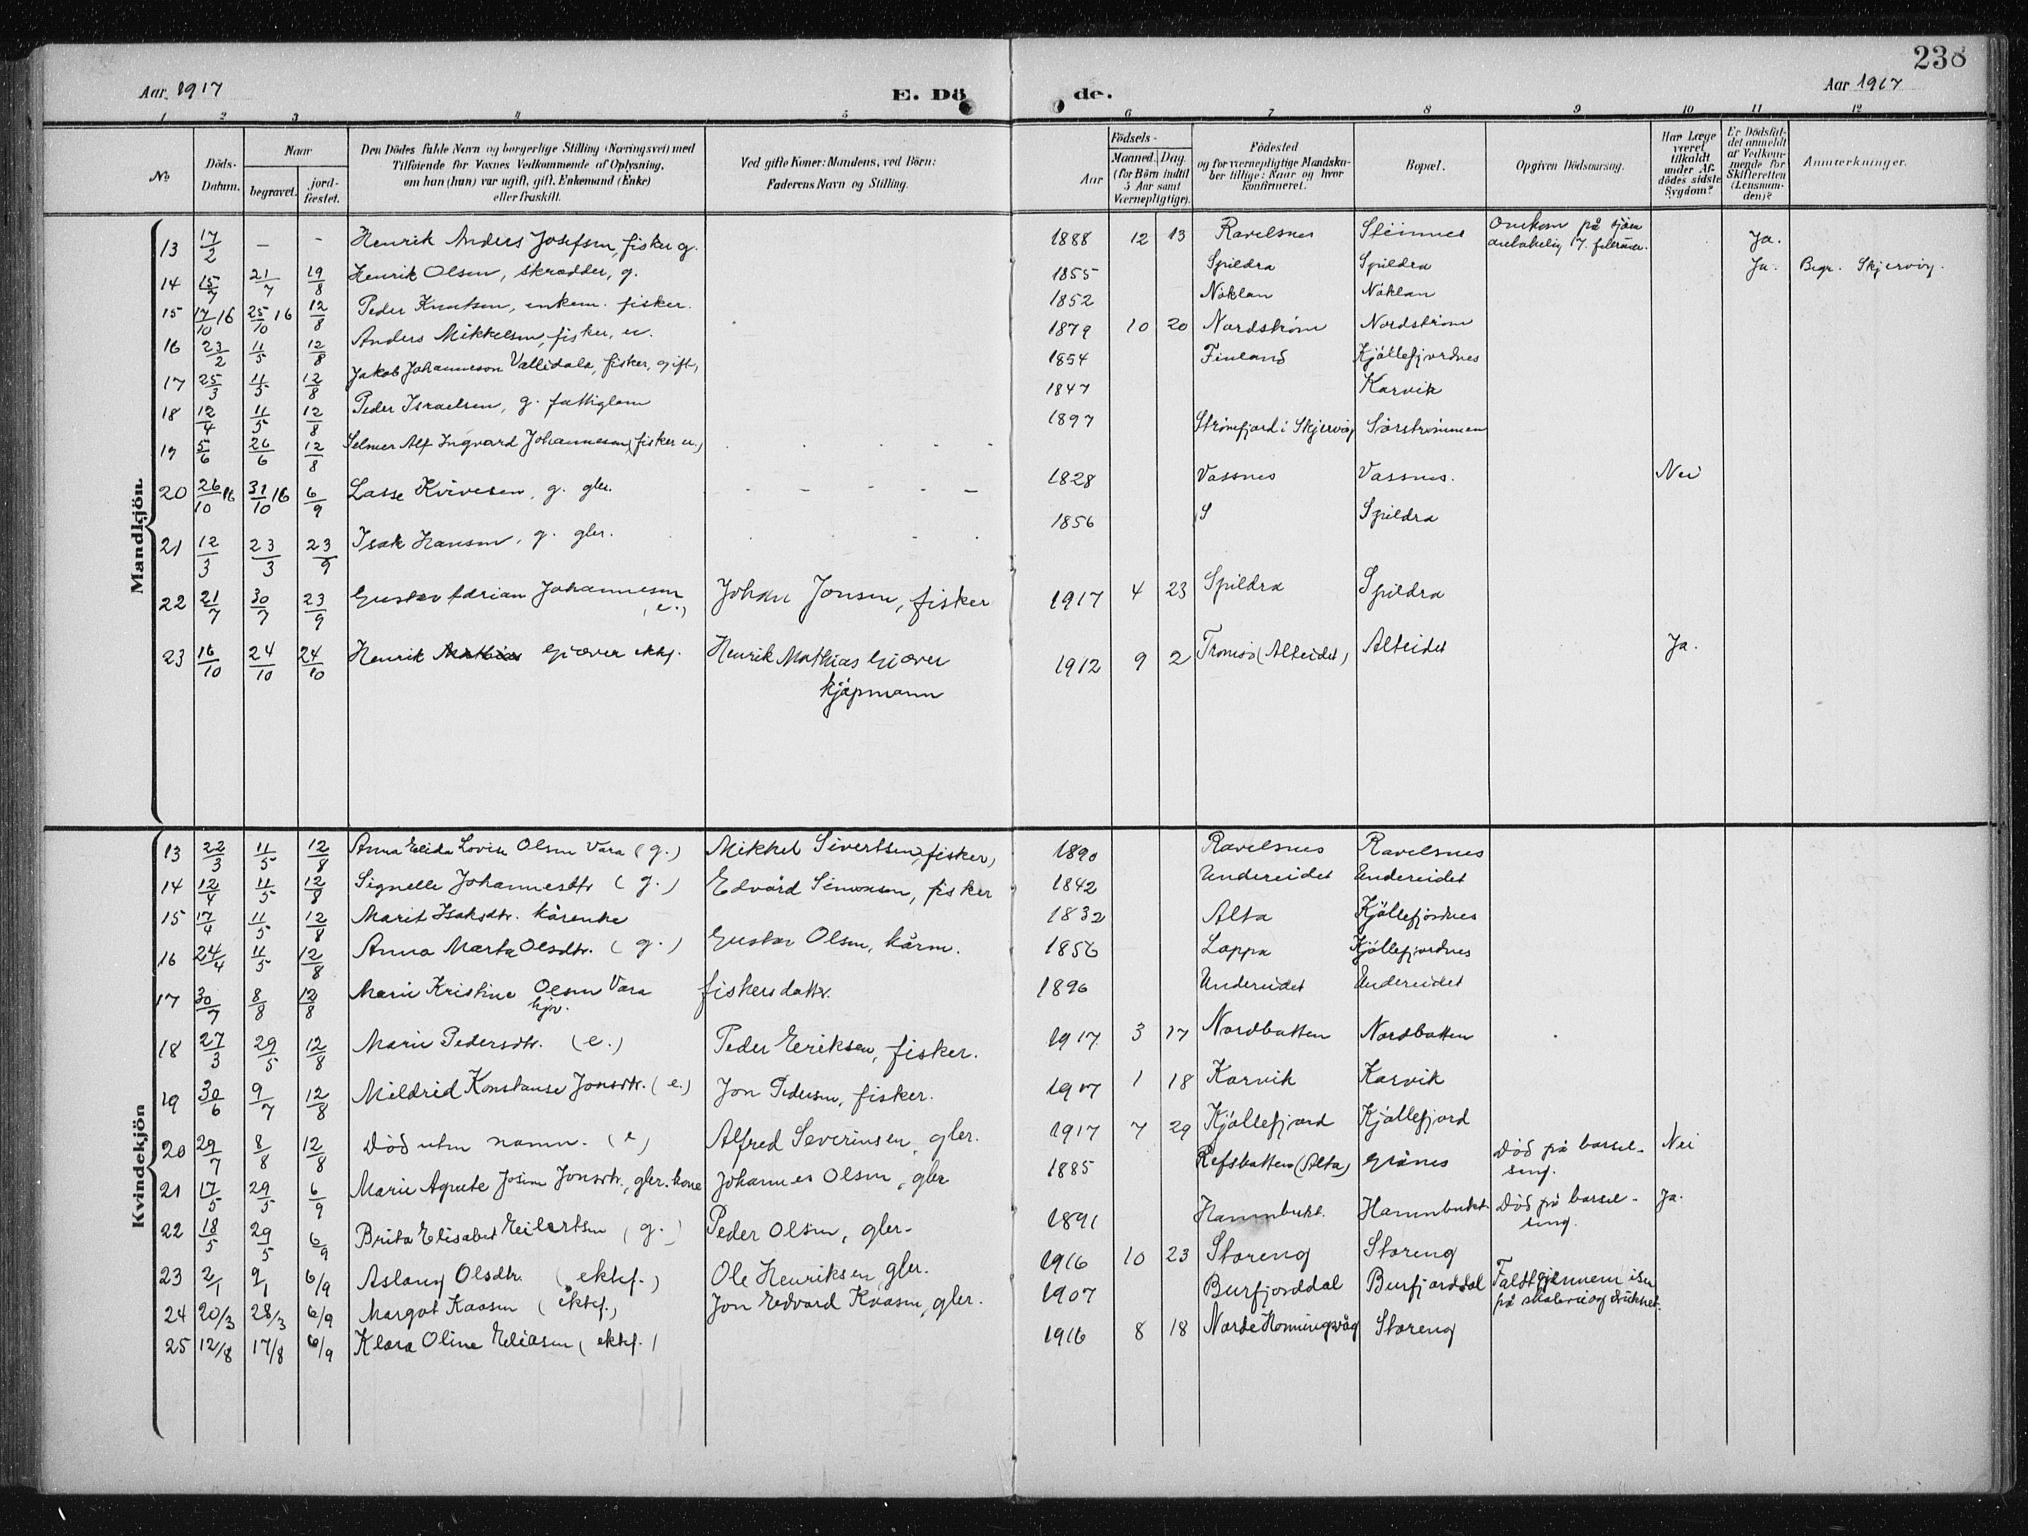 238
Aar 1917 E. Dö de. Aar 1917
1 2 3 4 5 6 7 8 9 10 11 12
No
Döds-
Datum.
Naar
begravet.
jord-
fæstet.
Den Dödes fulde Navn og borgerlige Stilling (Næringsvei) med
Tilföiende for Voxnes Vedkommende af Oplysning,
om han (hun) var ugift, gift, Enkemand (Enke)
eller fraskilt.
Ved gifte Koner: Mandens, ved Börn:
Faderens Navn og Stilling.
Födsels-
Aar
Maaned. Dag.
(for Börn indtil
5 Aar samt
Værnepligtige).
Födested
og for værnepligtige Mandska-
ber tillige: Naar og hvor
konfirmeret.
Bopæl.
Opgiven Dödsaarsag.
Har Læge
været
tilkaldt
under Af-
dödes sidste
Sygdom?
Er Dödsfal-
det anmeldt
af Vedkom-
mende for
Skifteretten
(Lensman-
den)?
Anmærkninger.
Mandkjön.
13 17/2 - - Henrik Anders Josefsen, fisker g. 1888 12 13 Ravelsnes Steinnes Omkom på sjøen antakelig 17. februar. Ja.
14 15/7 21/7 19/8 Henrik Olsen, skrædder, g. 1855 Spildra Spildra Ja. Begr. Skjervøy.
15 17/10 16 25/10 16 12/8 Peder Knutsen, enkem. fisker. 1852 Nöklan Nöklan
16 23/2 11/5 12/8 Anders Mikkelsen, fisker, u. 1879 10 20 Nordström Nordström
17 25/3 11/5 12/8 Jakob Johanneson Vallidala, fisker, gift, 1854 Finland Kjöllefjordnes
18 12/4 11/5 12/8 Peder Israelsen, g. fattiglem 1847 Karvik
19 5/6 26/6 12/8 Selmer Alf Ingvard Johannesen (fisker u.) 1897 Strömfjord i Skjervöy Sörströmmen
20 26/10 16 31/10 16 6/9 Lasse Kvivesen, g. gbr. - - - - - 1828 Vassnes Vassnes. Nei
21 12/3 23/3 23/9 Isak Hansen, g. gbr. 1856 S Spildra
22 21/7 30/7 23/9 Gustav Adrian Johannesen (e.) Johan Jonsen, fisker 1917 4 23 Spildra Spildra
23 16/10 24/10 24/10 Henrik Mathias Giæver ektf. Henrik Mathias Giæver 1912 9 2 Tromsö (Alteidet) Alteidet Ja.
kjöpmann
Kvindekjön
13 22/3 11/5 12/8 Anna Elida Lovise Olsen Vara (g.) Mikkel Sivertsen, fisker, 1890 Ravelsnes Ravelsnes
14 12/4 11/5 12/8 Signelle Johannesdtr (g.) Edvard Simonsen, fisker 1842 Undereidet Undereidet
15 17/4 11/5 12/8 Marit Isaksdtr. kårenke 1832 Alta Kjöllefjordnes
16 24/4 11/5 12/8 Anna Marta Olsdtr. (g.) Gustav Olsen, kårm. 1856 Loppa Kjöllefjordnes
17 30/7 8/8 12/8 Marie Kristine Olsen Vara fiskersdattr. 1896 Undereidet Undereidet
18 27/3 29/5 12/8 Marie Pedersdtr. (e.) Peder Eriksen, fisker. 1917 3 17 Nordbotten Nordbotten
19 30/6 9/7 12/8 Mildrid Konstanse Jonsdtr. (e.) Jon Pedersen, fisker. 1917 1 18 Karvik Karvik
20 29/7 8/8 12/8 Död uten namn. (e) Alfred Severinsen, gbr. 1917 7 29 Kjöllefjord Kjöllefjord
21 17/5 29/5 6/9 Marie Agnete Josine Jonsdtr., gbr. kone Johannes Olsen, gbr 1885 Refsbotten (Alta) Död på barsel- Nei
seng.
22 18/5 29/5 6/9 Brita Elisabet Eilertsen (g.) Peder Olsen, gbr- 1891 Hambukt. Hambukt. Död på barsel- Ja.
seng.
23 2/1 9/1 6/9 Aslaug Olsdtr. (ektef.) Ole Henriksen, gbr. 1916 10 23 Storeng Storeng
24 20/3 28/3 6/9 Margot Kaasen (ektef.) Jon Edvard Kaasen, gbr. 1907 Burfjorddal Burfjorddal Faldt gjennem isen
på skaleri og druknet.
25 12/8 17/8 6/9 Klara Oline Eliasen (ektef.) 1916 8 18 Nordre Honningsvåg Storeng